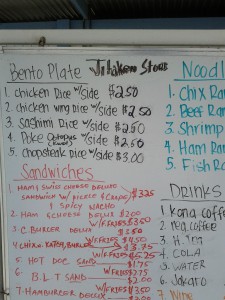 Bento Plate Jitaken Store
1. chicken Rice w/side $2.50
2. chicken wing Rice w/side $2.50
3. Sashimi Rice w/side $2.50
4. Poke Octopus w/side $2.50
5. chopsteak rice w/side $3.00
Sandwiches
1. HAM & SWISS CHEESE DELUXE
SANDWICH w/ PICKLE $3.25
& SPICY NACHO
2. HAM & CHEESE DELUX $2.00
W/FRIES $3.50
3. C. BURGER DELUX
W/FRIES
W/FRIES $5.25
5. HOT DOG SAND.
W/FRIES
6. B.L.T SAND
7. HAMBURGER DELUX
Noodl
1. Chix Ra
2. Beef Ram
3. Shrimp
4. Ham Ram
5. Fish Ra
DRINKS
1. kona coffe
2. reg. coffee
4. COLA
5. WATER